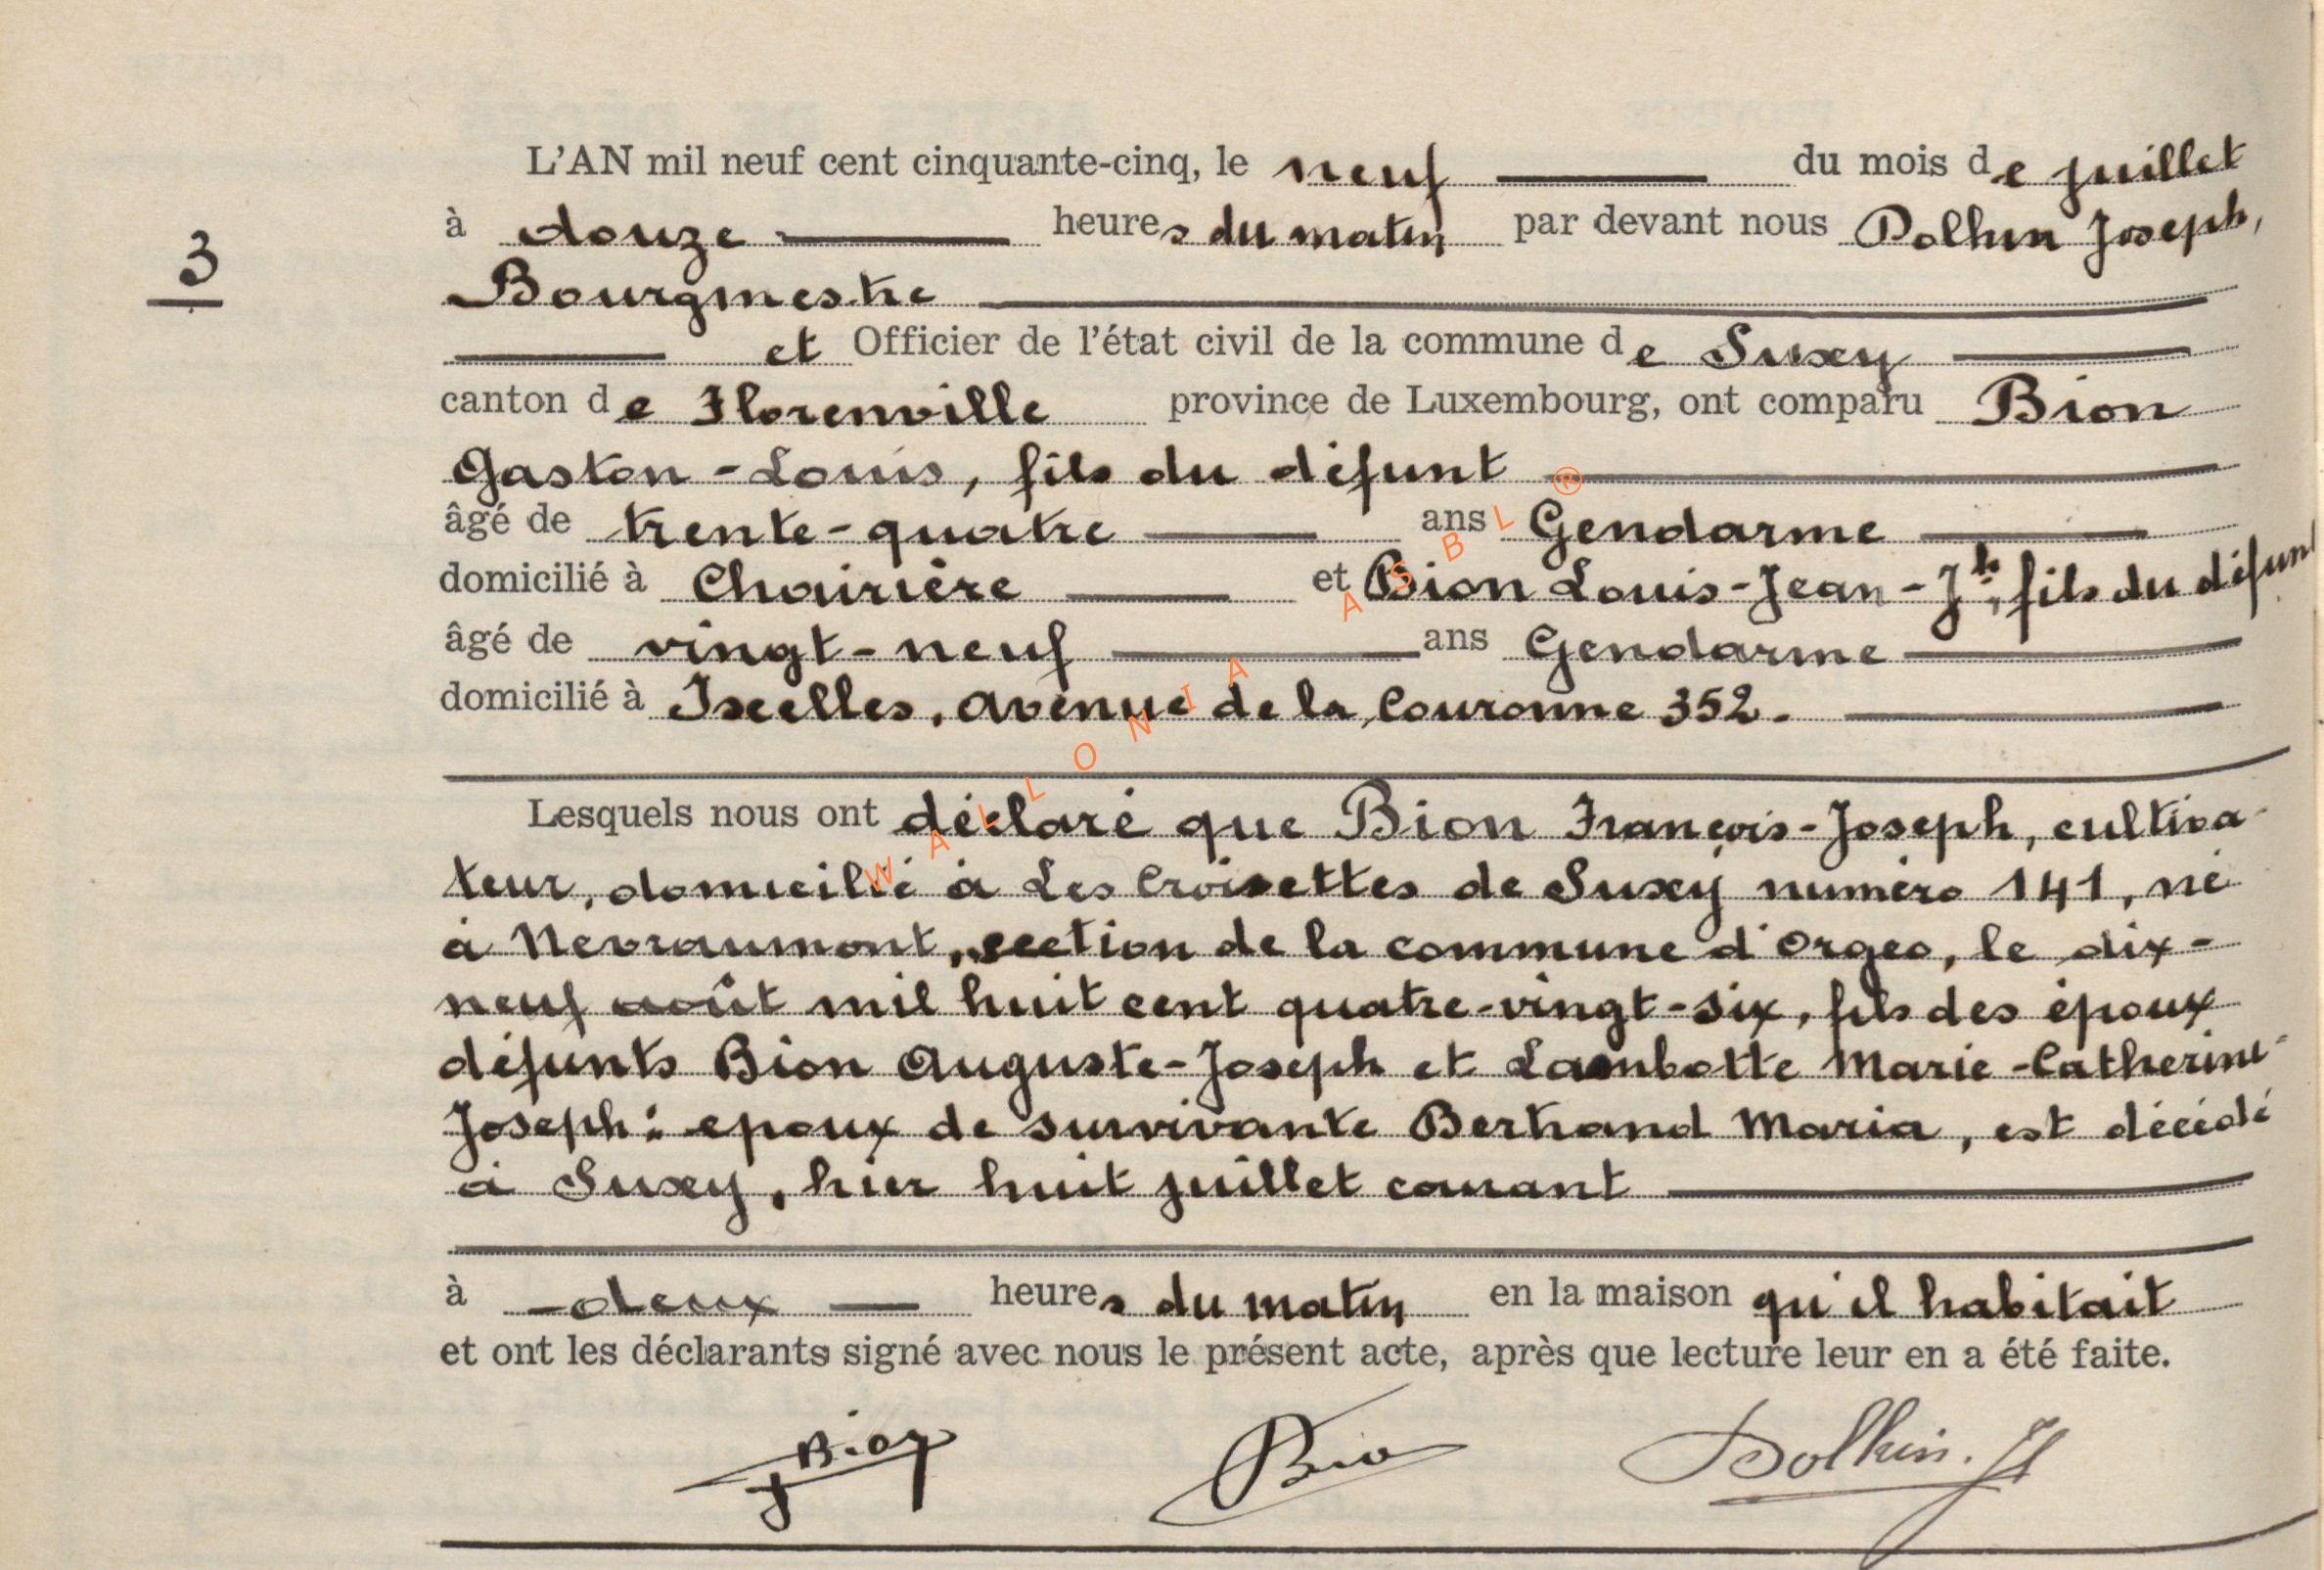 L'AN mil neuf cent cinquante-cinq, le neuf du mois de juillet
à douze heures du matin par devant nous Polhin Joseph,
3
Bourgmestre
et Officier de l'état civil de la commune de Suxy
canton de Florenville province de Luxembourg, ont comparu Bion
Gaston-Louis, fils du défunt
âgé de trente-quatre ans Gendarme
domicilié à Chairière et Bion Louis-Jean-Jh, fils du défunt
âgé de vingt-neuf ans Gendarme
domicilié à Ixelles, avenue de la Couronne 352.
Lesquels nous ont déclaré que Bion François-Joseph, cultiva-
teur, domicilié à Les Croisettes de Suxy numéro 141, né
à Nevraumont, section de la commune d'Orgeo, le dix-
neuf août mil huit cent quatre-vingt-six, fils des époux
défunts Bion Auguste-Joseph et Lambotte Marie-Catherine-
Joseph: epoux de survivante Bertrand Maria, est décédé
à Suxy, hier huit juillet courant
à deux heures du matin en la maison qu'il habitait
et ont les déclarants signé avec nous le présent acte, après que lecture leur en a été faite.
Bion Bion Polhin. Jh
WALLONIA ASBL ®